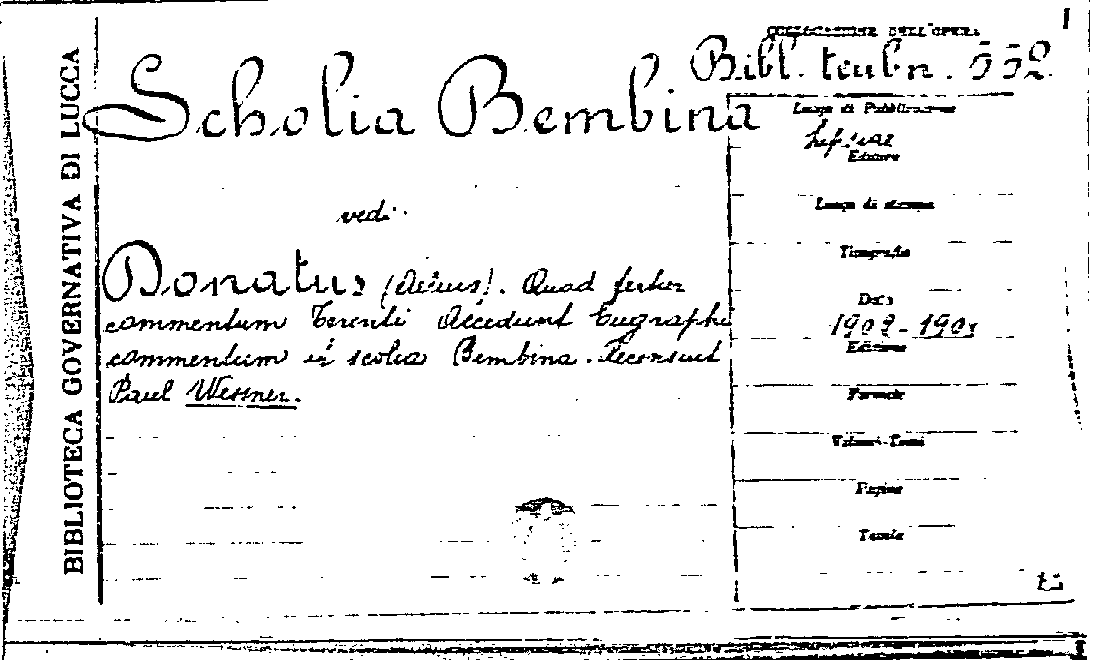 BIBLIOTECA GOVERNATIVA DI LUCCA
I
COLLOCAZIONE DELL'OPERA
Bibl. teubn. 552.
Scholia Bembina
vedi
Donatus (Aelius). Quod fertur
commentum Terenti Accedunt Eugraphi
commentum et scolia Bembina. Recensuit
Paul Wessner.
Luogo di Pubblicazione
Lipsiae
Editore
Luogo di stampa
Tipografia
Data
1902-190
Edizione
Formato
Volumi-Tomi
Pagine
Tavole